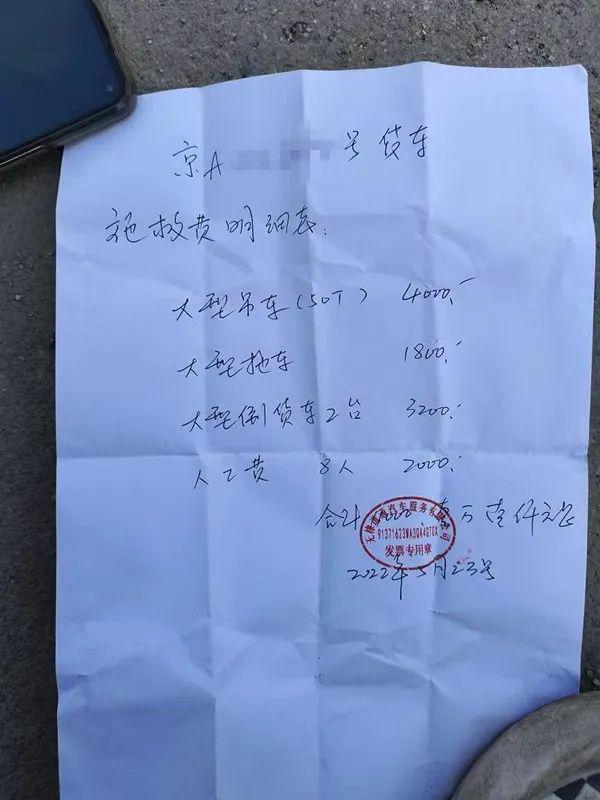 京A 号货车
施救费明细表:
大型吊车(50T) 4000.-
大型拖车 1800.-
大型倒货车2台 3200.-
人工费 8人 2000.-
合计 壹万壹仟元正
无棣 汽车服务有限公司
91371623MA3QA4GT0X
发票专用章
2022年5月23号